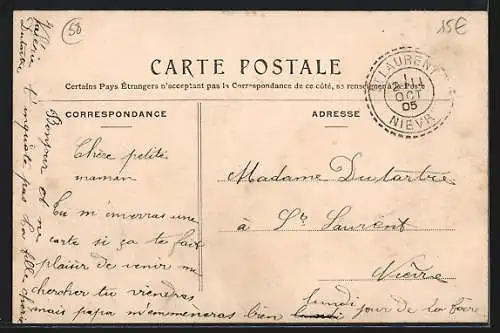 58
15€
CARTE POSTALE
Certains Pays Étrangers n'acceptant pas la Correspondance de ce côté, se renseigner à la Poste
CORRESPONDANCE
ADRESSE
ST LAURENT
OCT
05
NIEVR
Chère petite
maman
Tu m'enverras une
carte si ça te fait
plaisir de venir me
chercher tu viendras
mais papa m'emmènerais bien lundi jour de la foire
Madame Dutartre
à St Laurent
Nièvre
Bonjour et ne
t'inquiète pas ta fille chérie
Valerie
Dutartre